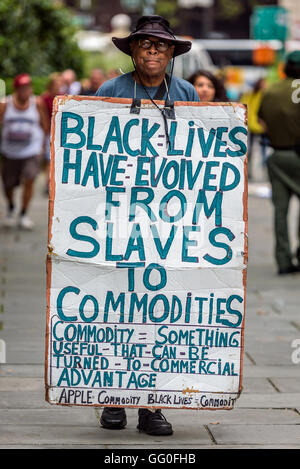 BLACK-LIVES
HAVE-EVOLVED
FROM
SLAVES
TO
COMMODITIES
COMMODITY-SOMETHING
USEFUL-THAT-CAN-BE
TURNED-TO-COMMERCIAL
ADVANTAGE
APPLE-COMMODITY BLACK-LIVES-COMMODITY
a
a
alamy stock photo
2G60FHC